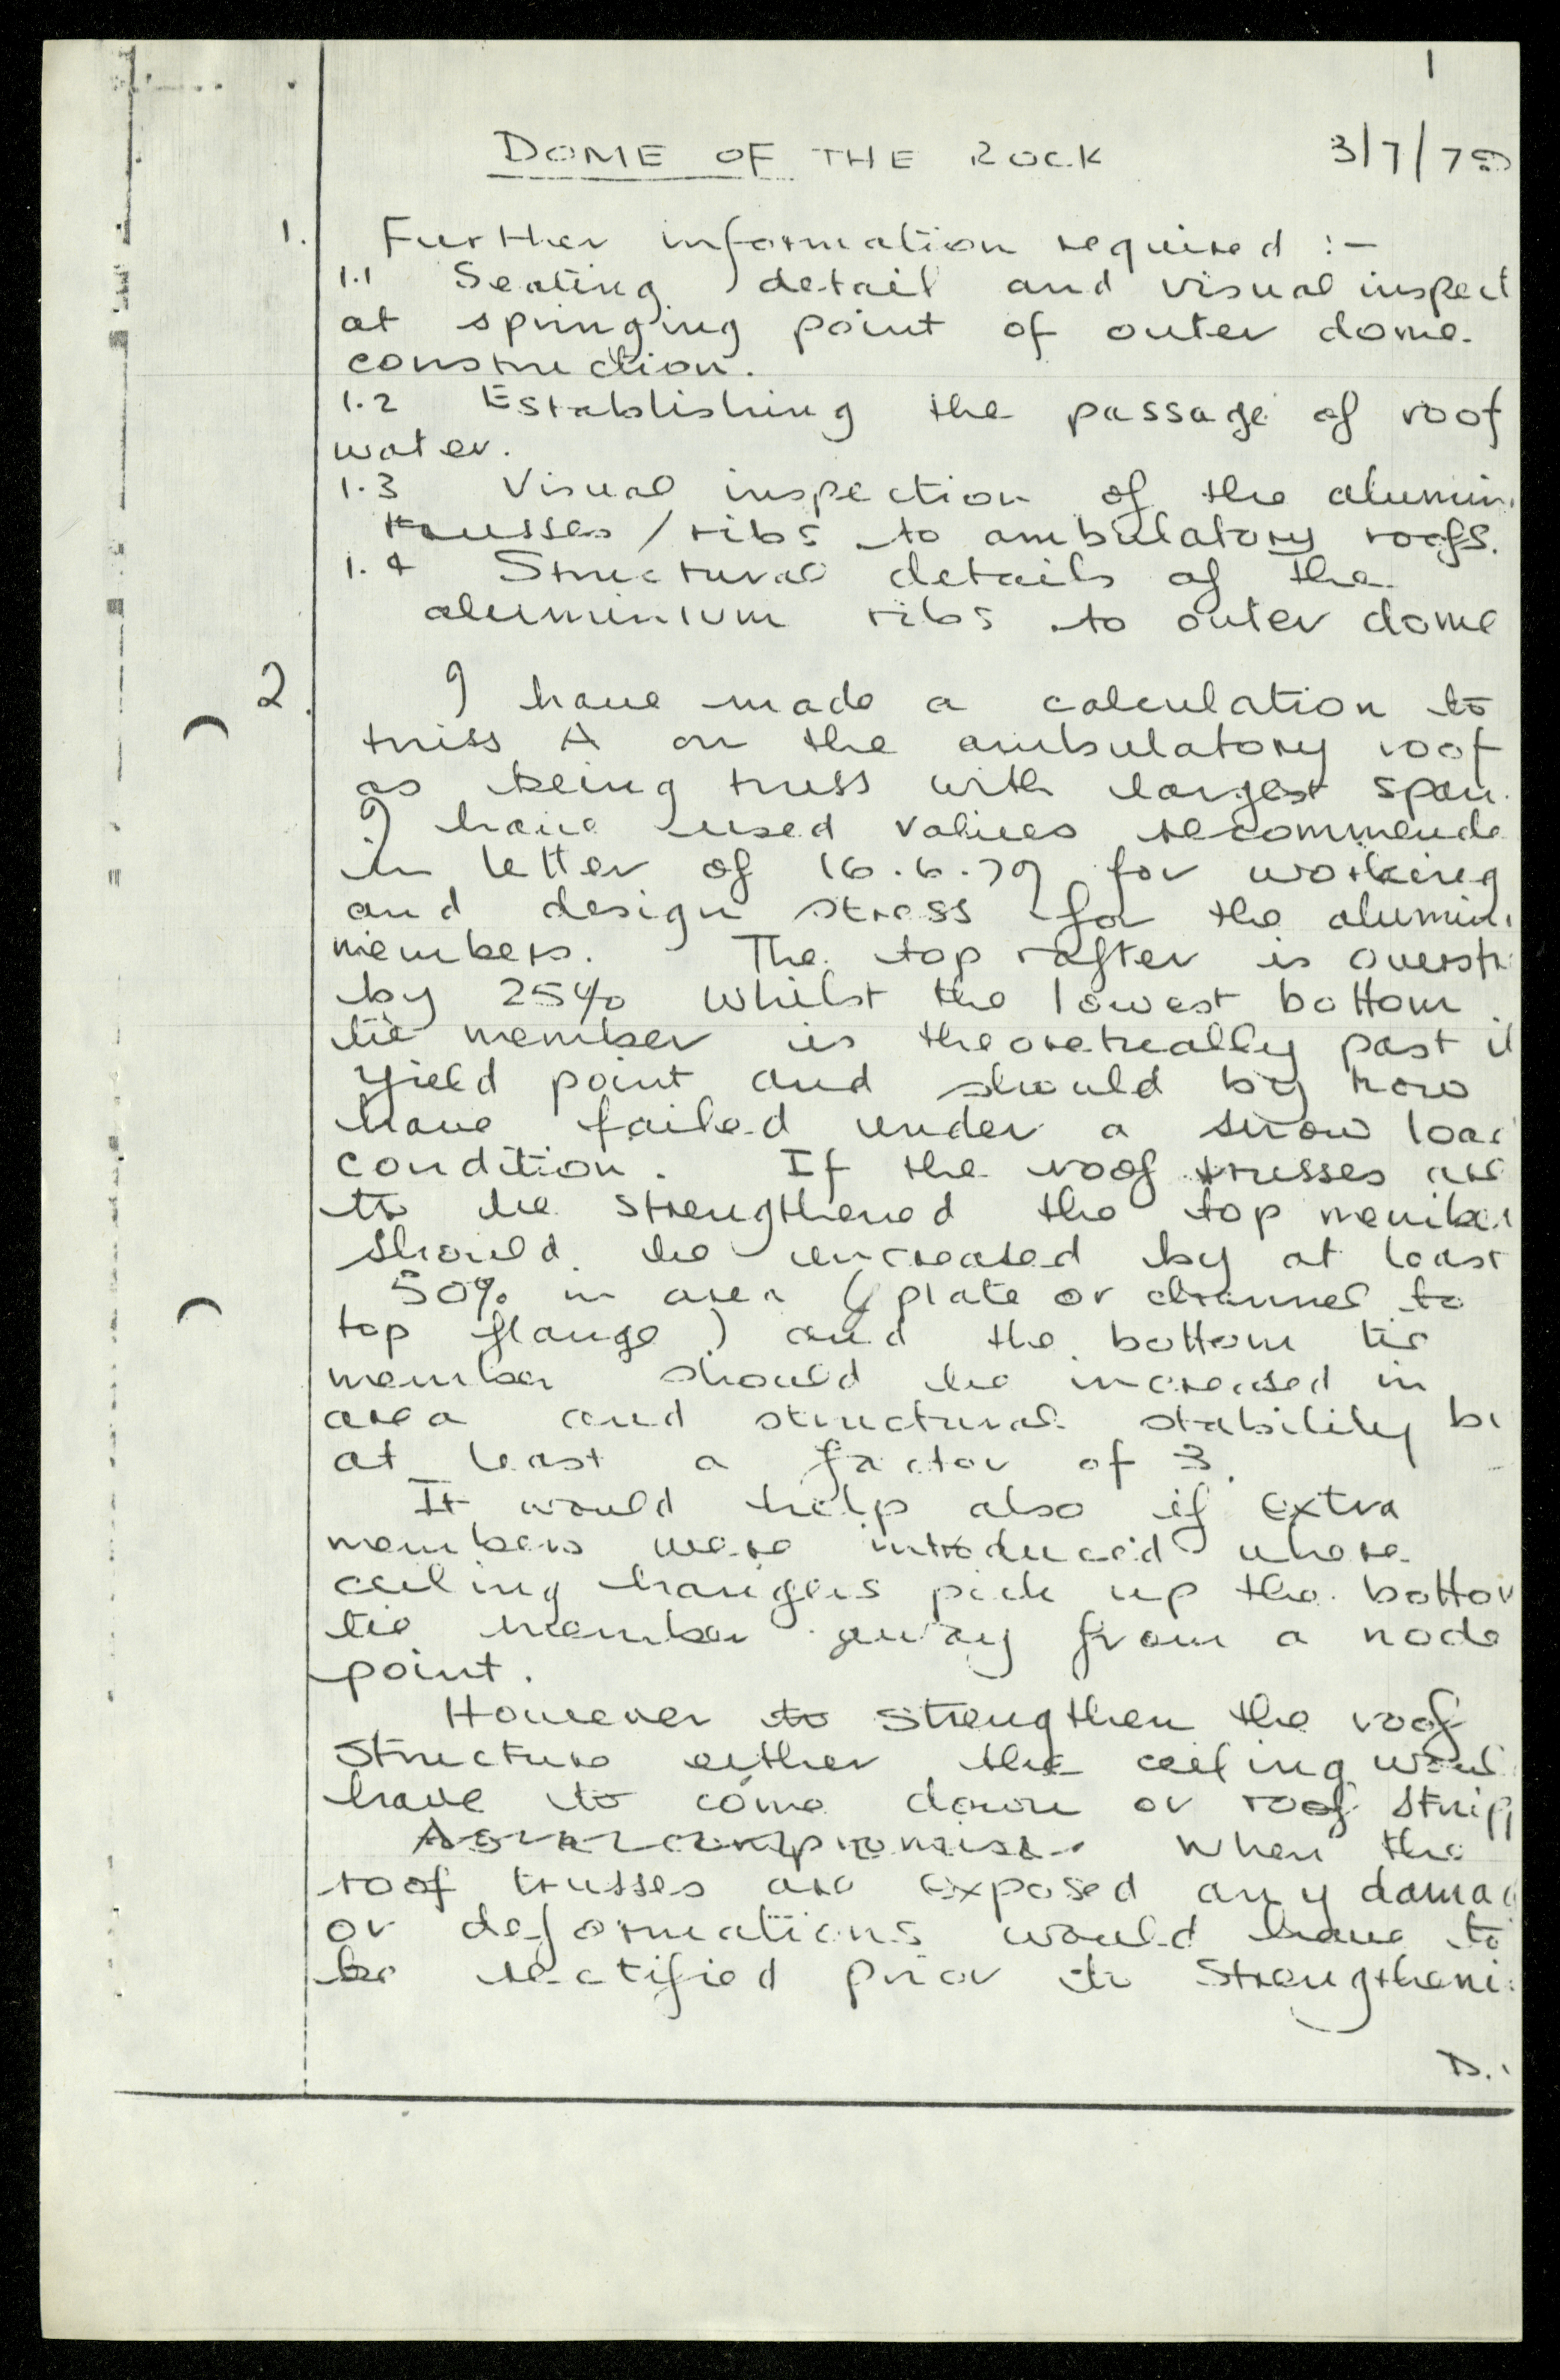 1
DOME OF THE ROCK 3/7/79
1. Further information required :-
1.1 Seating detail and visual inspect
at springing point of outer dome
construction.
1.2 Establishing the passage of roof
water.
1.3 Visual inspection of the alumin
trusses / ribs to ambulatory roofs.
1.4 Structural details of the
aluminium ribs to outer dome
2. I have made a calculation to
truss A on the ambulatory roof
as being truss with largest span.
I have used values recommende
in letter of 16.6.79 for working
and design stress for the alumini
members. The top rafter is overstr
by 25% whilst the lowest bottom
tie member is theoretically past it
yield point and should by now
have failed under a snow load
condition. If the roof trusses are
to be strengthened the top member
should be increased by at least
50% in area (plate or channel to
top flange) and the bottom tie
member should be increased in
area and structural stability by
at least a factor of 3.
It would help also if extra
members were introduced where
ceiling hangers pick up the bottom
tie member away from a node
point.
However to strengthen the roof
structure either the ceiling woul
have to come down or roof stripp
As a compromise. When the
roof trusses are exposed any damag
or deformations would have to
be rectified prior to strengtheni
D.